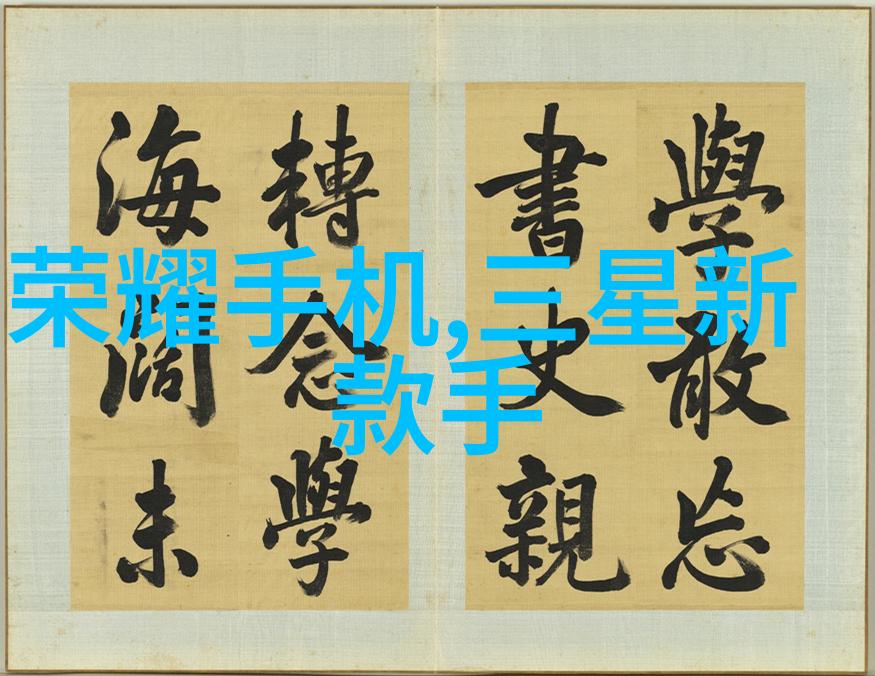 學敢忘
書史親
轉念學
海闊未
荣耀手机,三星新
款手